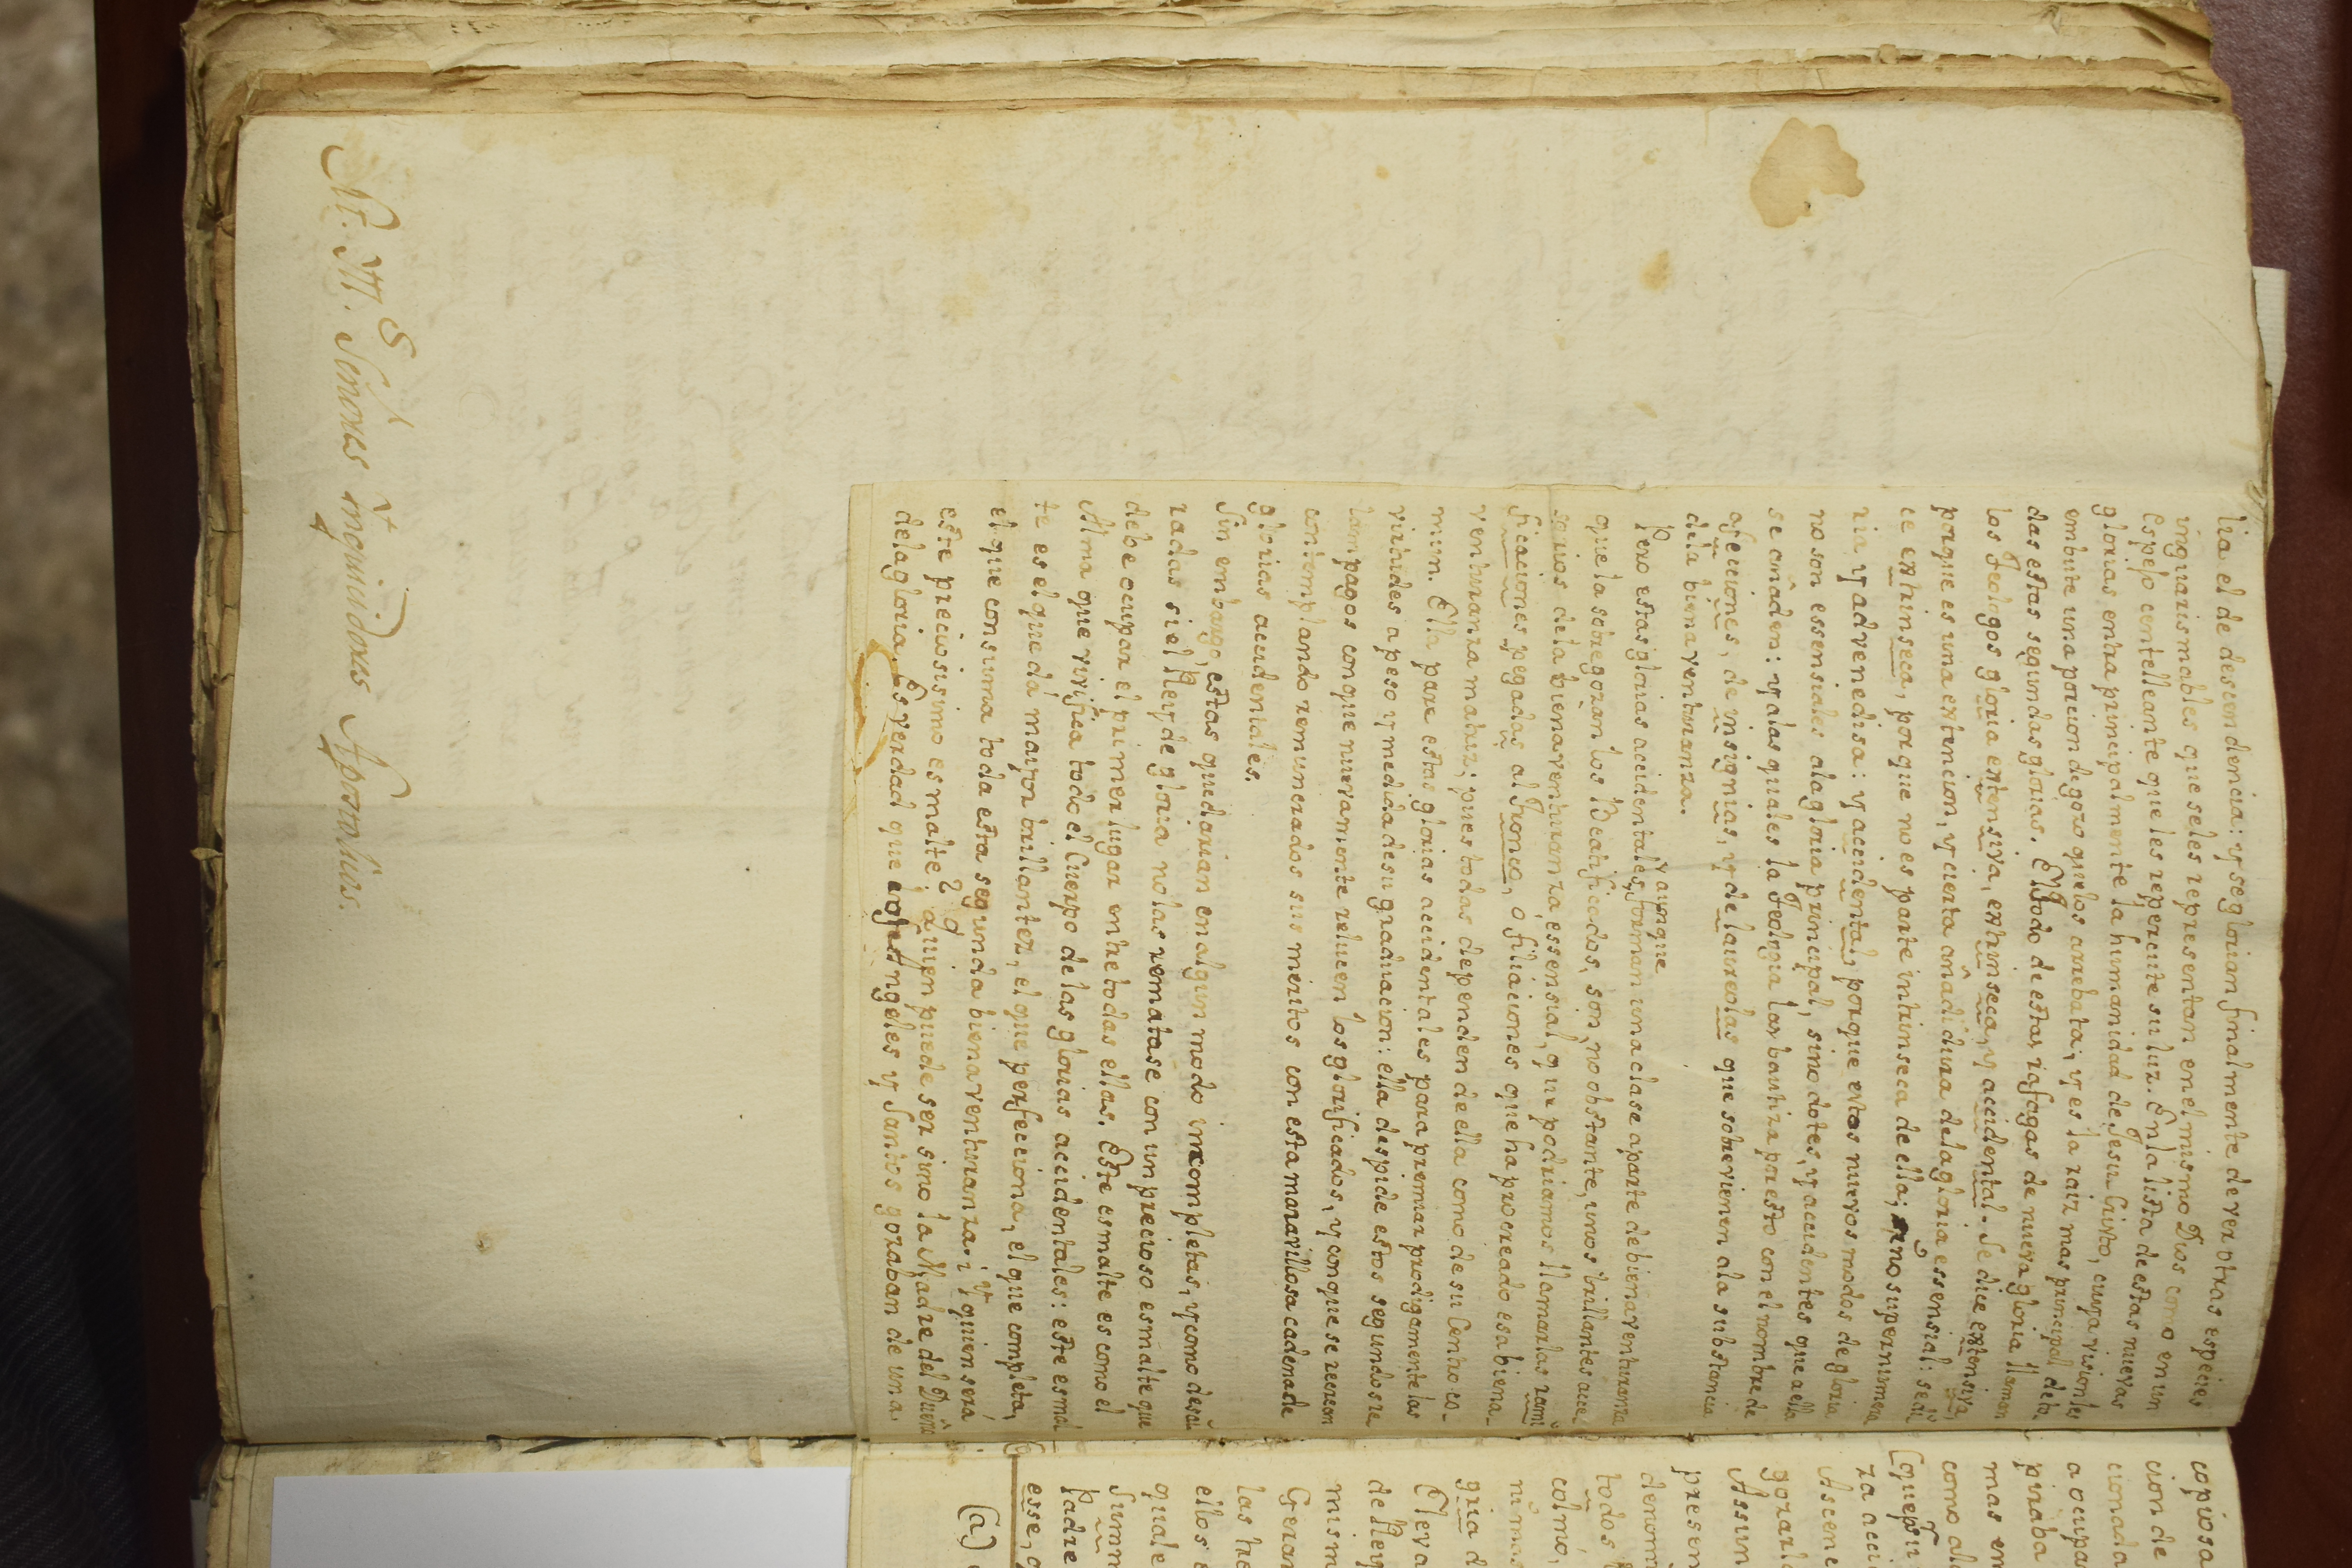 lia el de descendencia: y se glorian finalmente de ver otras especies
inguarismables que seles representan en el mismo Dios como en un
Espejo centelleante que les repercute su luz. En la lista de estas nuevas
glorias entra principalmente la humanidad de Jesu Cristo, cuya vision les
embute una porcion de gozo que los arrebata; y es la raiz mas principal de to
das estas segundas glorias. El todo de estas rafagas de nueva gloria llaman
los Teologos gloria extensiva, extrinseca, y accidental. Se dice extensiva,
porque es una extencion, y cierta añadidura de la gloria essensial: se di
ce extrinseca, porque no es parte intrinseca de ella; sino supernumera
ria y advenediza: y accidental, porque estos nuevos modos de gloria
no son essensiales a la gloria principal, sino dotes, y accidentes que a ella
se añaden: y a las quales la Teologia las bautiza presto con el nombre de
afecciones, de insignias, y de laureolas que sobrevienen a la substancia
de la bienaventuranza.
Pero estas glorias accidentales, aunque forman una clase aparte de bienaventuranza
que la sobregozan los Beatificados, son, no obstante, unos brillantes acce
sorios de la bienaventuranza essensial, que podriamos llamarlas rami
ficaciones pegadas al Tronco, o filiaciones que ha procreado esa biena-
venturanza matriz; pues todas dependen de ella como de su Centro co-
mun. Ella pare estas glorias accidentales para premiar prodigamente las
virtudes a peso y medida de su graduacion: ella despide estos segundos re
lampagos con que nuevamente relucen los glorificados, y con que se recrean
contemplando remunerados sus meritos con esta maravillosa cadena de
glorias accidentales.
Sin embargo, estas quedarian en algun modo incompletas, y como desai
radas si el Rey de gloria no las rematase con un precioso esmalte que
debe ocupar el primer lugar entre todas ellas. Este esmalte es como el
Alma que vivifica todo el Cuerpo de las glorias accidentales: este esmal
te es el que da mayor brillantez, el que perfecciona, el que completa,
el que consuma toda esta segunda bienaventuranza. i, y quien será
este preciosisimo esmalte? ¿quien puede ser sino la Madre del Dueño
de la gloria. Es verdad que los Angeles y Santos gozaban de una
M. Y. S. Señores inquisidores Apostolicos.
copiosa
cion de
cionada
a ocupa
piraba
mas em
como al
(que pu
za acci
Ascenc
gozarlo
Assun
presen
denomi
todos
colmo,
ni mas
gria d
Eleva
de Rey
mism
Geran
las he
ellos
quale
Summ
Padre
esse, c
(a)